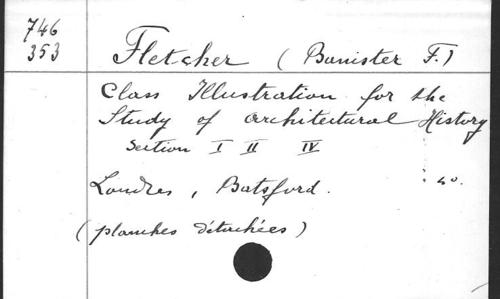 746
353
Fletcher (Banister F.)
Class Illustration for the
Study of architectural History
Section I II IV
Londres, Batsford.
(planches détachées)